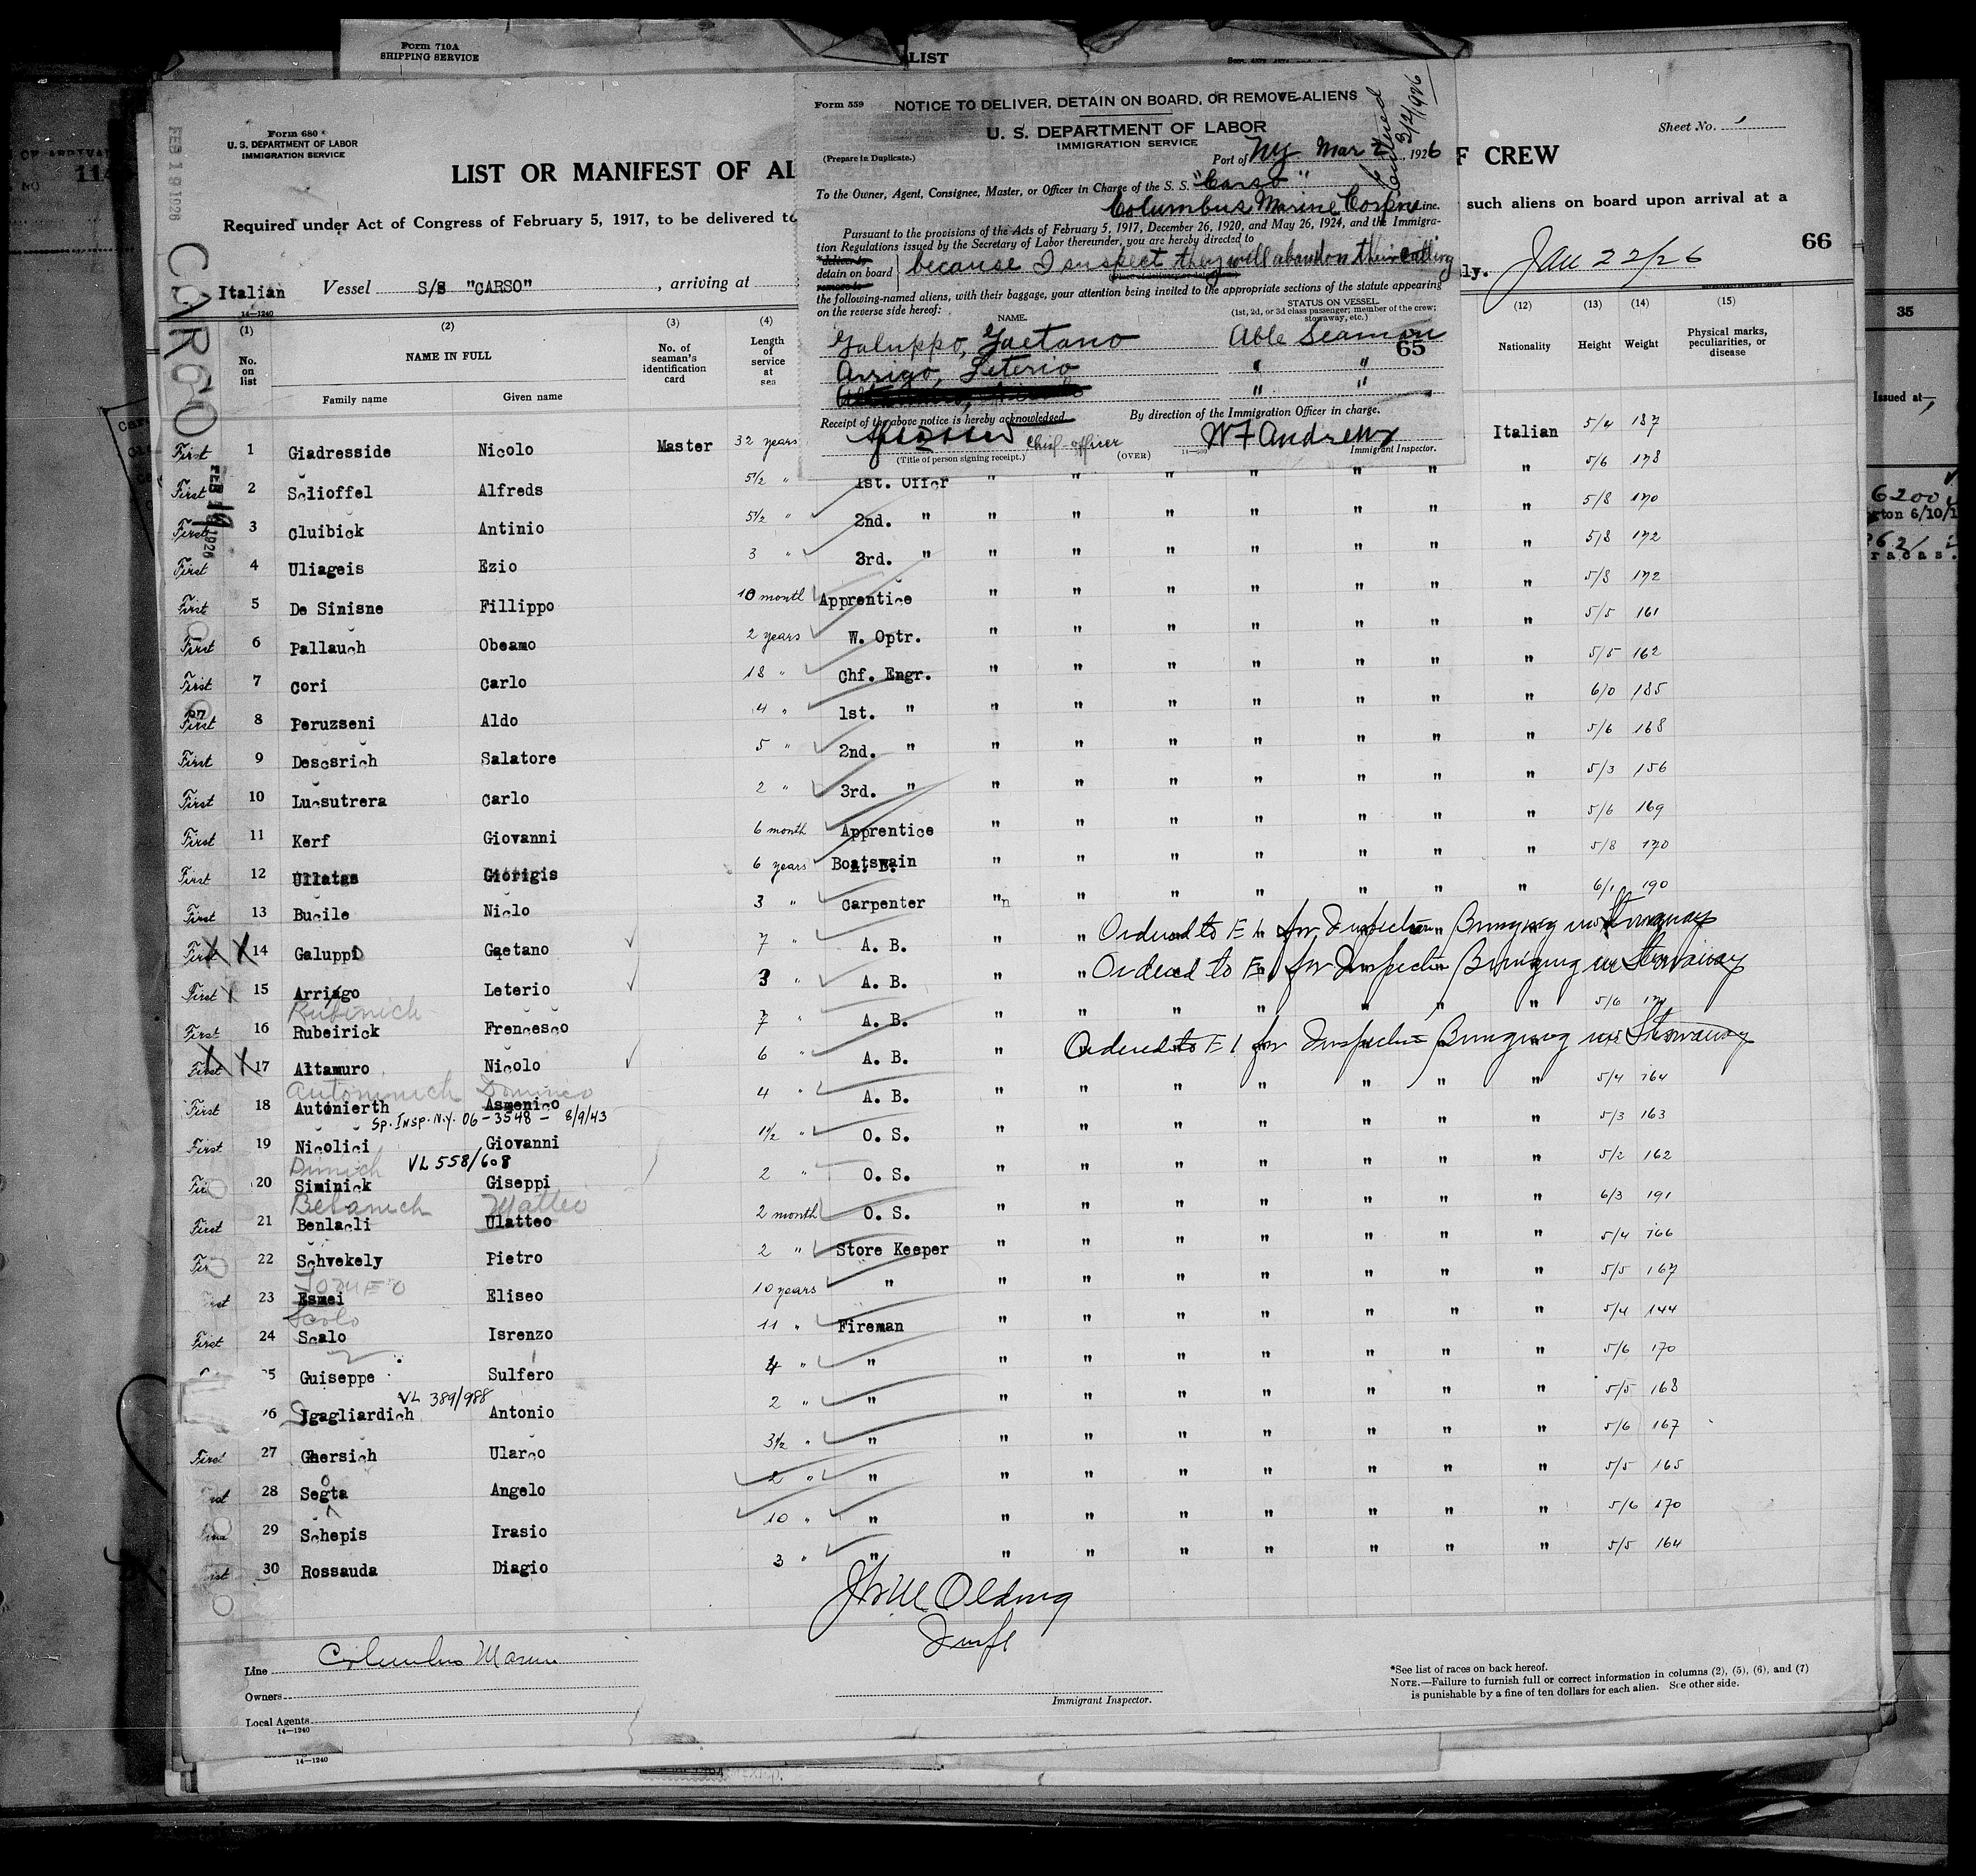 Form 710A
SHIPPING SERVICE
LIST
Form 680
U. S. DEPARTMENT OF LABOR
IMMIGRATION SERVICE
FEB 19 1926
CARGO
Sheet No.
LIST OR MANIFEST OF AL
F CREW
Required under Act of Congress of February 5, 1917, to be delivered to
such aliens on board upon arrival at a
66
Italian Vessel S/S "CARSO" , arriving at
ly. Jan 22/26
14—1240
Form 559 NOTICE TO DELIVER, DETAIN ON BOARD, OR REMOVE ALIENS
U. S. DEPARTMENT OF LABOR
IMMIGRATION SERVICE
(Prepare in Duplicate.)
Port of NY Mar 2, 1926
3/2/1926
To the Owner, Agent, Consignee, Master, or Officer in Charge of the S. S. "Carso"
Columbus Marine Corpn Line.
Pursuant to the provisions of the Acts of February 5, 1917, December 26, 1920, and May 26, 1924, and the Immigra-
tion Regulations issued by the Secretary of Labor thereunder, you are hereby directed to
*deliver to
detain on board because I suspect they will abandon their calling
remove to
the following-named aliens, with their baggage, your attention being invited to the appropriate sections of the statute appearing
on the reverse side hereof:
NAME.
STATUS ON VESSEL
(1st, 2d, or 3d class passenger; member of the crew; stowaway, etc.)
Galuppo, Gaetano Able Seaman
65
Arrigo, Leterio " "
" "
Receipt of the above notice is hereby acknowledged
By direction of the Immigration Officer in charge.
Chief officer
W F Andrews
(Title of person signing receipt.) (OVER) Immigrant Inspector.
(1) (2) (3) (4) (12) (13) (14) (15)
No. on list
NAME IN FULL
Family name Given name
No. of seaman's identification card
Length of service at sea
Nationality Height Weight
Physical marks, peculiarities, or disease
First 1 Giadresside Nicolo Master 32 years Italian 5/4 187
First 2 Scioffel Alfreds 5½ " 1st. Offcr " " " " " " " 5/6 178
First 3 Cluibick Antinio 5½ " 2nd. " " " " " " " " 5/8 170
First 4 Uliageis Ezio 3 " 3rd. " " " " " " " " 5/8 172
First 5 De Sinisne Fillippo 10 month Apprentice " " " " " " " 5/8 172
First 6 Pallauch Obeamo 2 years W. Optr. " " " " " " " 5/5 161
First 7 Cori Carlo 18 " Chf. Engr. " " " " " " " 5/5 162
First 8 Peruzseni Aldo 4 " 1st. " " " " " " " " 6/0 185
First 9 Descsrich Salatore 5 " 2nd. " " " " " " " " 5/6 168
First 10 Lucsutrera Carlo 2 " 3rd. " " " " " " " " 5/3 156
First 11 Kerf Giovanni 6 month Apprentice " " " " " " " 5/6 169
First 12 Ullatas Giorigis 6 years Boatswain " " " " " " " 5/8 170
First 13 Bucile Niclo 3 " Carpenter " " " " " " " 6/1 190
First 14 Galuppi Gaetano 7 " A. B. " " Ordered to E I for Inspection Bringing in Stowaway
First 15 Arriago Leterio 3 " A. B. " " Ordered to E I for Inspection Bringing in Stowaway
Rubinich
First 16 Rubeirick Frencesco 7 " A. B. " " " " " " " 5/6
First 17 Altamuro Nicolo 6 " A. B. " Ordered to E I for Inspection Bringing in Stowaway
Autoninich Dominico
First 18 Autonierth Asmenico 4 " A. B. " " " " " " " 5/4 164
Sp. Insp. N.Y. 06-3548 - 8/9/43
First 19 Nicolici Giovanni 1½ " O. S. " " " " " " " 5/3 163
VL 558/608
20 Siminick Giseppi 2 " O. S. " " " " " " " 5/2 162
Belanich Matteo
First 21 Benlacli Ulatteo 2 month O. S. " " " " " " " 6/3 191
22 Schvekely Pietro 2 " Store Keeper " " " " " " " 5/4 166
23 Esmei Eliseo 10 years " " " " " " " " 5/5 167
Scolo
First 24 Scalo Isrenzo 11 " Fireman " " " " " " " 5/4 144
Guiseppe Sulfero 4 " " " " " " " " " 5/6 170
VL 389/988
Igagliardich Antonio 2 " " " " " " " " " 5/5 168
First 27 Ghersich Ularco 3½ " " " " " " " " " 5/6 167
28 Segta Angelo 2 " " " " " " " " " 5/5 165
29 Schepis Irasio 10 " " " " " " " " " 5/6 170
30 Rossauda Diagio 3 " " " " " " " " " 5/5 164
Line Columbus Marine
Owners
Local Agents
14—1240
Immigrant Inspector.
*See list of races on back hereof.
NOTE.—Failure to furnish full or correct information in columns (2), (5), (6), and (7)
is punishable by a fine of ten dollars for each alien. See other side.
14—1240
35
Issued at